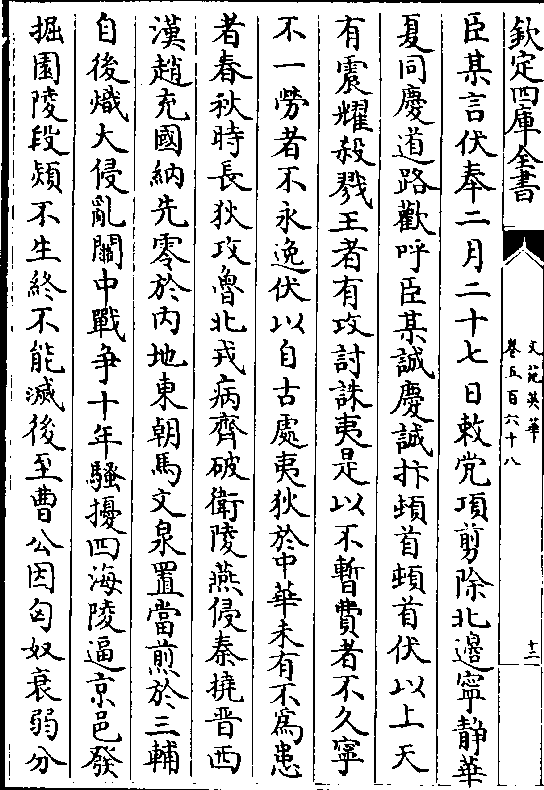 欽定四庫全書
文苑英華
卷五百六十八
十二
臣某言伏奉二月二十七日敕党項剪除北邉寧靜華
夏同慶道路歡呼臣某誠慶誠抃頓首頓首伏以上天
有震耀殺戮王者有攻討誅夷是以不暫費者不久寧
不一勞者不永逸伏以自古處夷狄於中華未有不為患
者春秋時長狄攻魯北戎病齊破衛陵燕侵秦撓晉西
漢趙充國納先零於内地東朝馬文泉置當煎於三輔
自後熾大侵亂關中戰争十年騷擾四海陵逼京邑發
掘園陵段熲不生終不能滅後至曹公因匈奴衰弱分